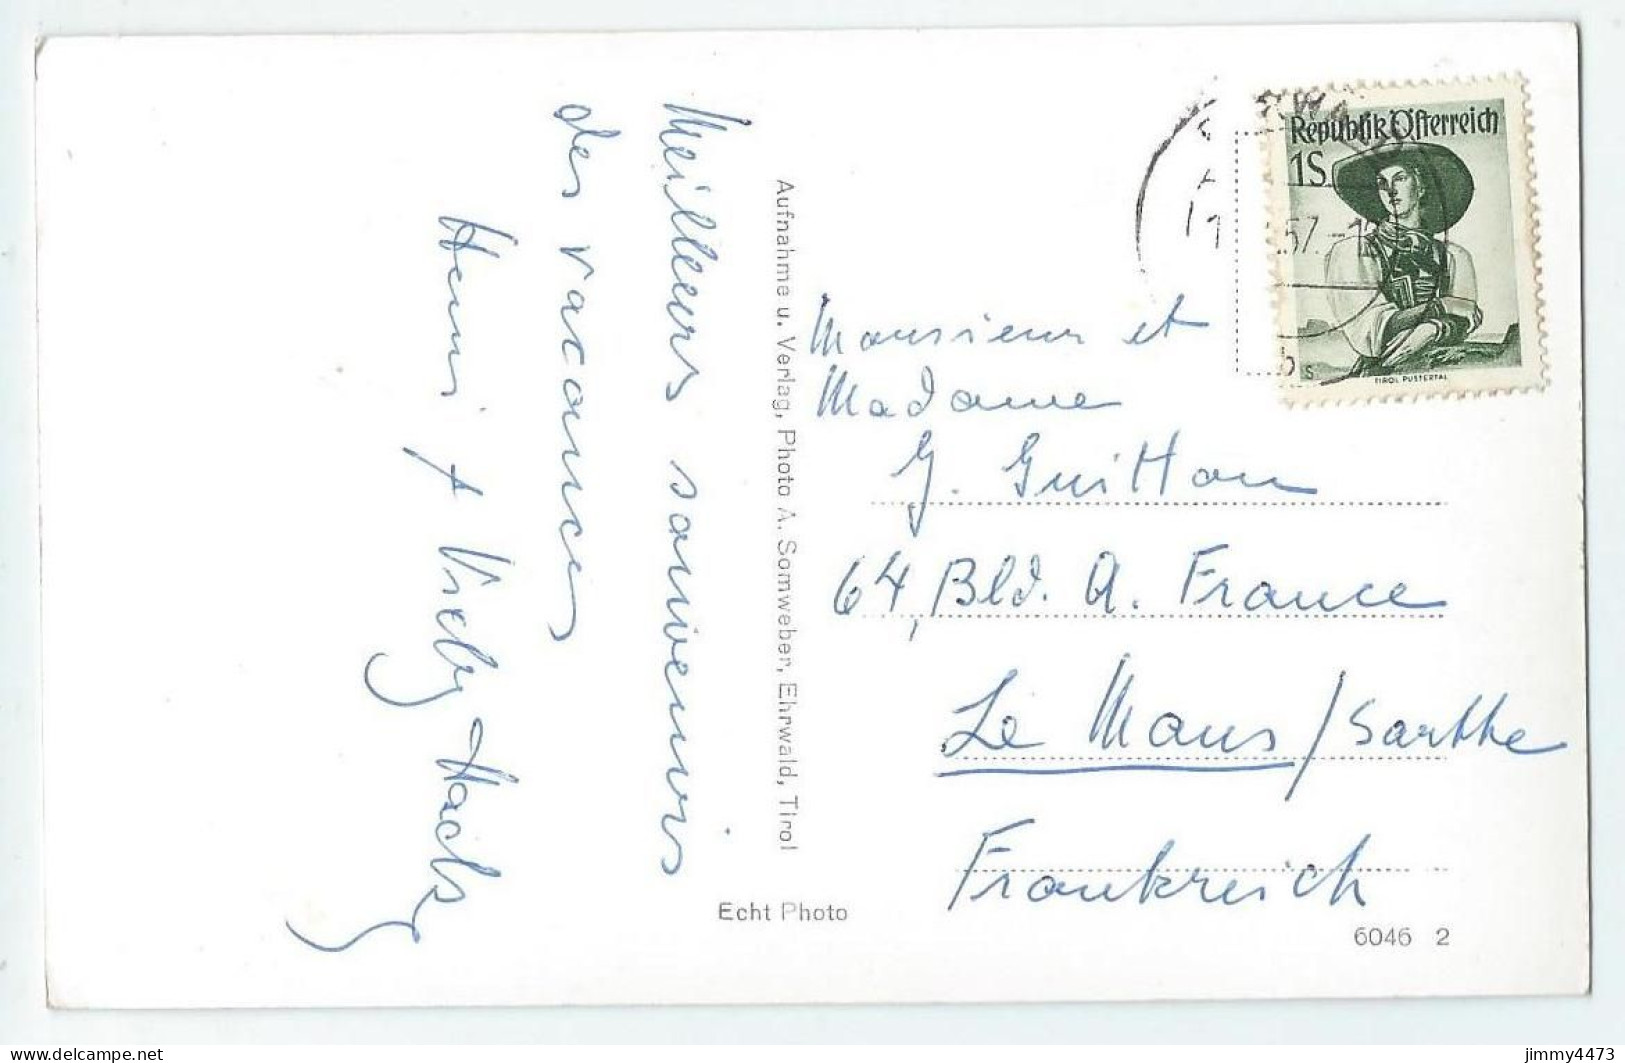 Meilleurs souvenirs
des vacances
Aufnahme u. Verlag, Photo A. Somweber, Ehrwald, Tirol
Echt Photo
Republik Österreich
1S
TIROL PUSTERTAL
57.-1
Monsieur et
Madame
G. Guitton
64, Bld. A. France
Le Mans/Sarthe
Frankreich
6046 2
jimmy4473